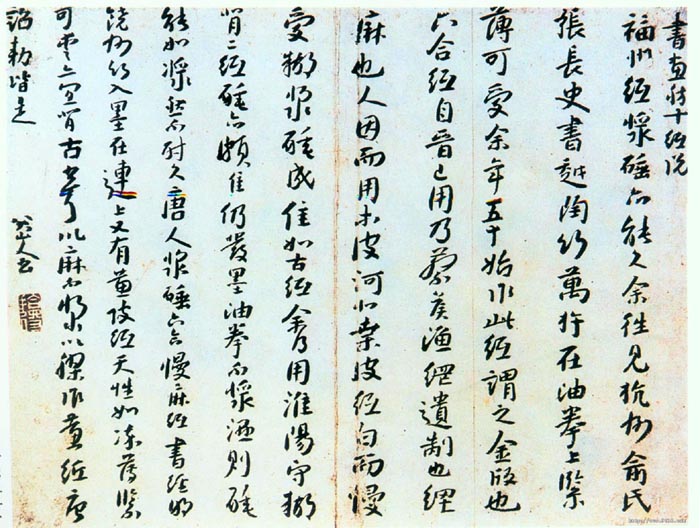 書十紙說
福州紙漿硾亦能久余往見杭州俞氏
張長史書越陶竹萬杵在油拳上緊
薄可愛余年五十始作此紙謂之金版也
六合紙自晉已用乃蔡侯漁網遺制也網
麻也人因而用木皮河北桑皮紙白而慢
愛糊漿硾成佳如古紙余乃用淮陽守糊
背二紙硾亦頗佳仍發墨油拳不漿濕則硾
能如漿然不耐久唐人漿硾六合慢麻紙書經明
饒州竹入墨在連上又有黃皮紙天性如凍薄緊
可愛亦宜背古書以麻不漿以膠作黃紙唐
詔敕皆是
八大山人書